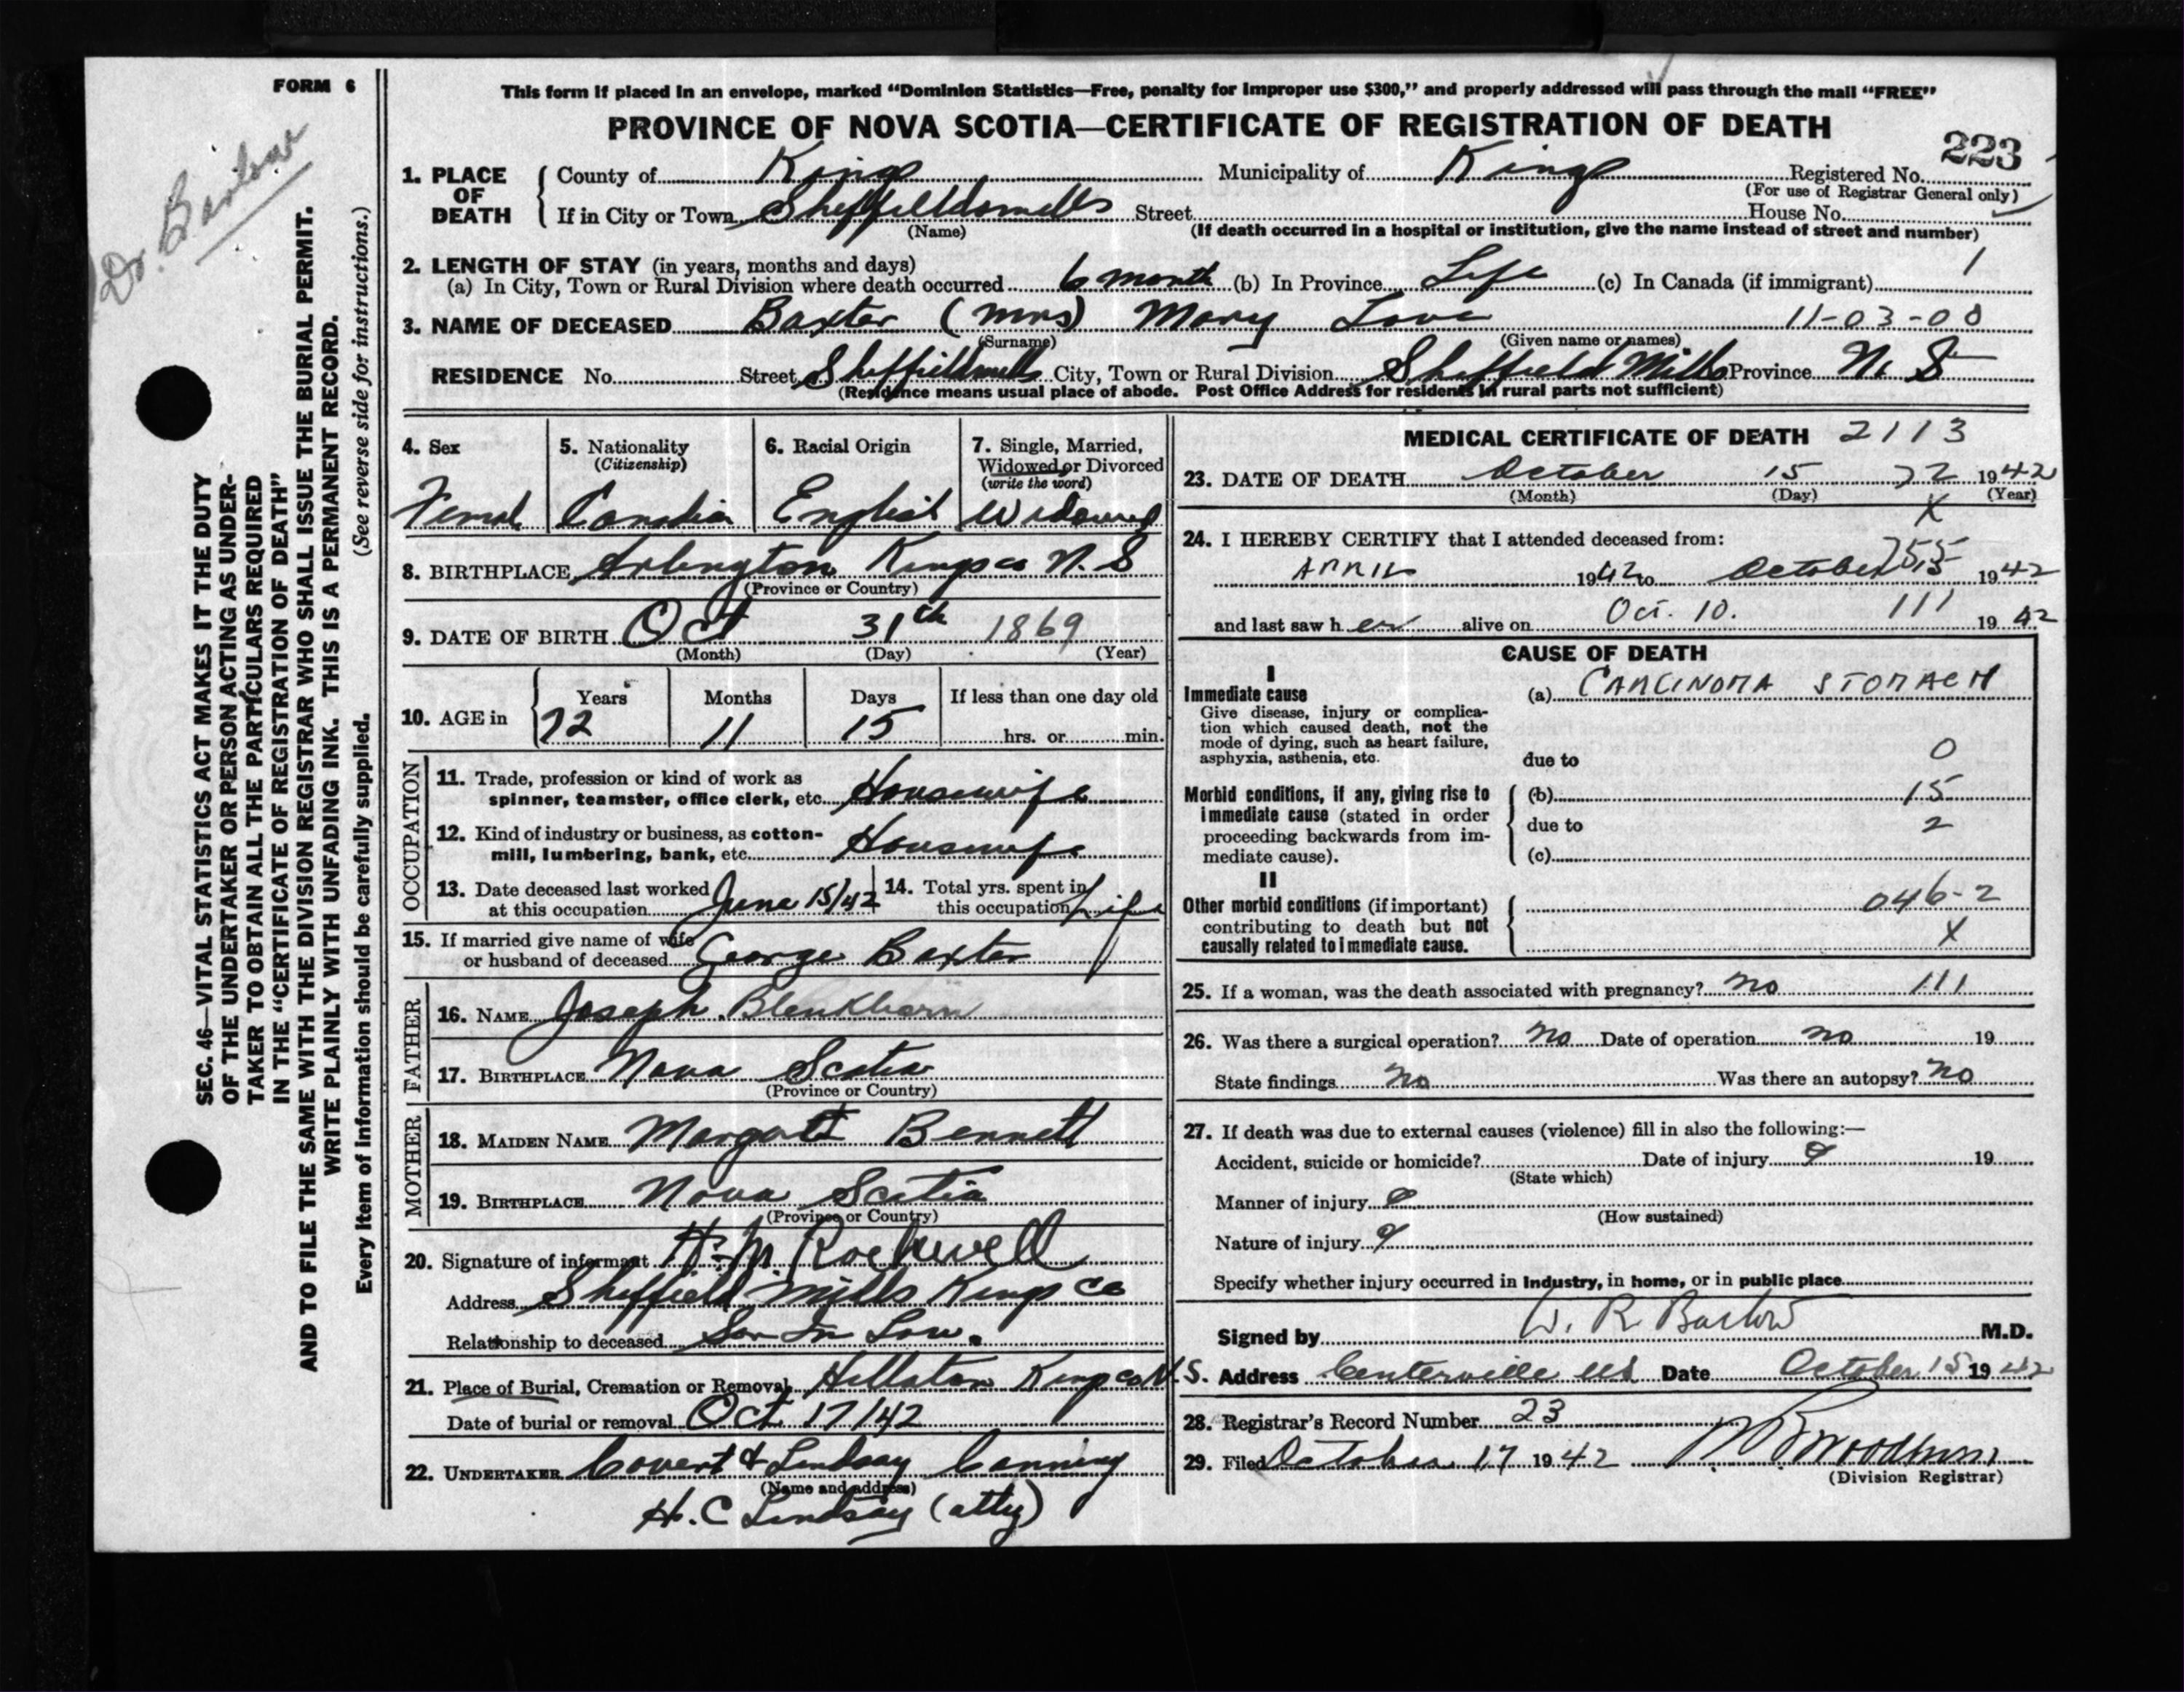 FORM 6
This form if placed in an envelope, marked "Dominion Statistics—Free, penalty for improper use $300," and properly addressed will pass through the mail "FREE"
PROVINCE OF NOVA SCOTIA—CERTIFICATE OF REGISTRATION OF DEATH
223
Dr. Barlow
SEC. 46—VITAL STATISTICS ACT MAKES IT THE DUTY
OF THE UNDERTAKER OR PERSON ACTING AS UNDER-
TAKER TO OBTAIN ALL THE PARTICULARS REQUIRED
IN THE "CERTIFICATE OF REGISTRATION OF DEATH"
AND TO FILE THE SAME WITH THE DIVISION REGISTRAR WHO SHALL ISSUE THE BURIAL PERMIT.
WRITE PLAINLY WITH UNFADING INK. THIS IS A PERMANENT RECORD.
Every item of information should be carefully supplied. (See reverse side for instructions.)
1. PLACE OF DEATH County of Kings Municipality of Kings Registered No.
(For use of Registrar General only)
If in City or Town Sheffieldsmills Street House No.
(Name) (If death occurred in a hospital or institution, give the name instead of street and number)
2. LENGTH OF STAY (in years, months and days) 1
(a) In City, Town or Rural Division where death occurred 6 month (b) In Province Life (c) In Canada (if immigrant)
3. NAME OF DECEASED Baxter (Mrs) Mary 11-03-00
(Surname) (Given name or names)
RESIDENCE No. Street Sheffieldmills City, Town or Rural Division Sheffield Mills Province N. S
(Residence means usual place of abode. Post Office Address for residents in rural parts not sufficient)
4. Sex 5. Nationality 6. Racial Origin 7. Single, Married,
(Citizenship) Widowed or Divorced
(write the word)
Female Canadian English Widowed
8. BIRTHPLACE Arlington Kings co N. S
(Province or Country)
9. DATE OF BIRTH Oct 31th 1869
(Month) (Day) (Year)
10. AGE in Years Months Days If less than one day old
72 11 15 hrs. or min.
OCCUPATION
11. Trade, profession or kind of work as
spinner, teamster, office clerk, etc. Housewife
12. Kind of industry or business, as cotton-
mill, lumbering, bank, etc. Housewife
13. Date deceased last worked at this occupation June 15/42 14. Total yrs. spent in this occupation Life
15. If married give name of wife
or husband of deceased George Baxter
FATHER
16. NAME Joseph Blenkhorn
17. BIRTHPLACE Nova Scotia
(Province or Country)
MOTHER
18. MAIDEN NAME Margaret Bennett
19. BIRTHPLACE Nova Scotia
(Province or Country)
20. Signature of informant H. M. Rockwell
Address Sheffield Mills Kings Co
Relationship to deceased Son In Law.
21. Place of Burial, Cremation or Removal Hillaton Kings co N. S.
Date of burial or removal Oct 17/42
22. UNDERTAKER Covert & Lindsay Canning
(Name and address)
H. C Lindsay (atty)
MEDICAL CERTIFICATE OF DEATH 2113
23. DATE OF DEATH October 15 72 1942
(Month) (Day) (Year)
X
24. I HEREBY CERTIFY that I attended deceased from:
APRIL 1942 to October 15 1942
and last saw her alive on Oct. 10. 111 1942
CAUSE OF DEATH
I
Immediate cause (a) CARCINOMA STOMACH
Give disease, injury or complica-
tion which caused death, not the
mode of dying, such as heart failure,
asphyxia, asthenia, etc. due to 0
Morbid conditions, if any, giving rise to (b) 15
immediate cause (stated in order due to 2
proceeding backwards from im-
mediate cause). (c)
II
Other morbid conditions (if important) 046-2
contributing to death but not
causally related to immediate cause. X
25. If a woman, was the death associated with pregnancy? no 111
26. Was there a surgical operation? no Date of operation no 19
State findings no Was there an autopsy? no
27. If death was due to external causes (violence) fill in also the following:—
Accident, suicide or homicide? Date of injury 19
(State which)
Manner of injury
(How sustained)
Nature of injury
Specify whether injury occurred in Industry, in home, or in public place
Signed by W. R Barlow M.D.
Address Centerville Date October 15 1942
28. Registrar's Record Number 23
29. Filed October 17 1942
(Division Registrar)